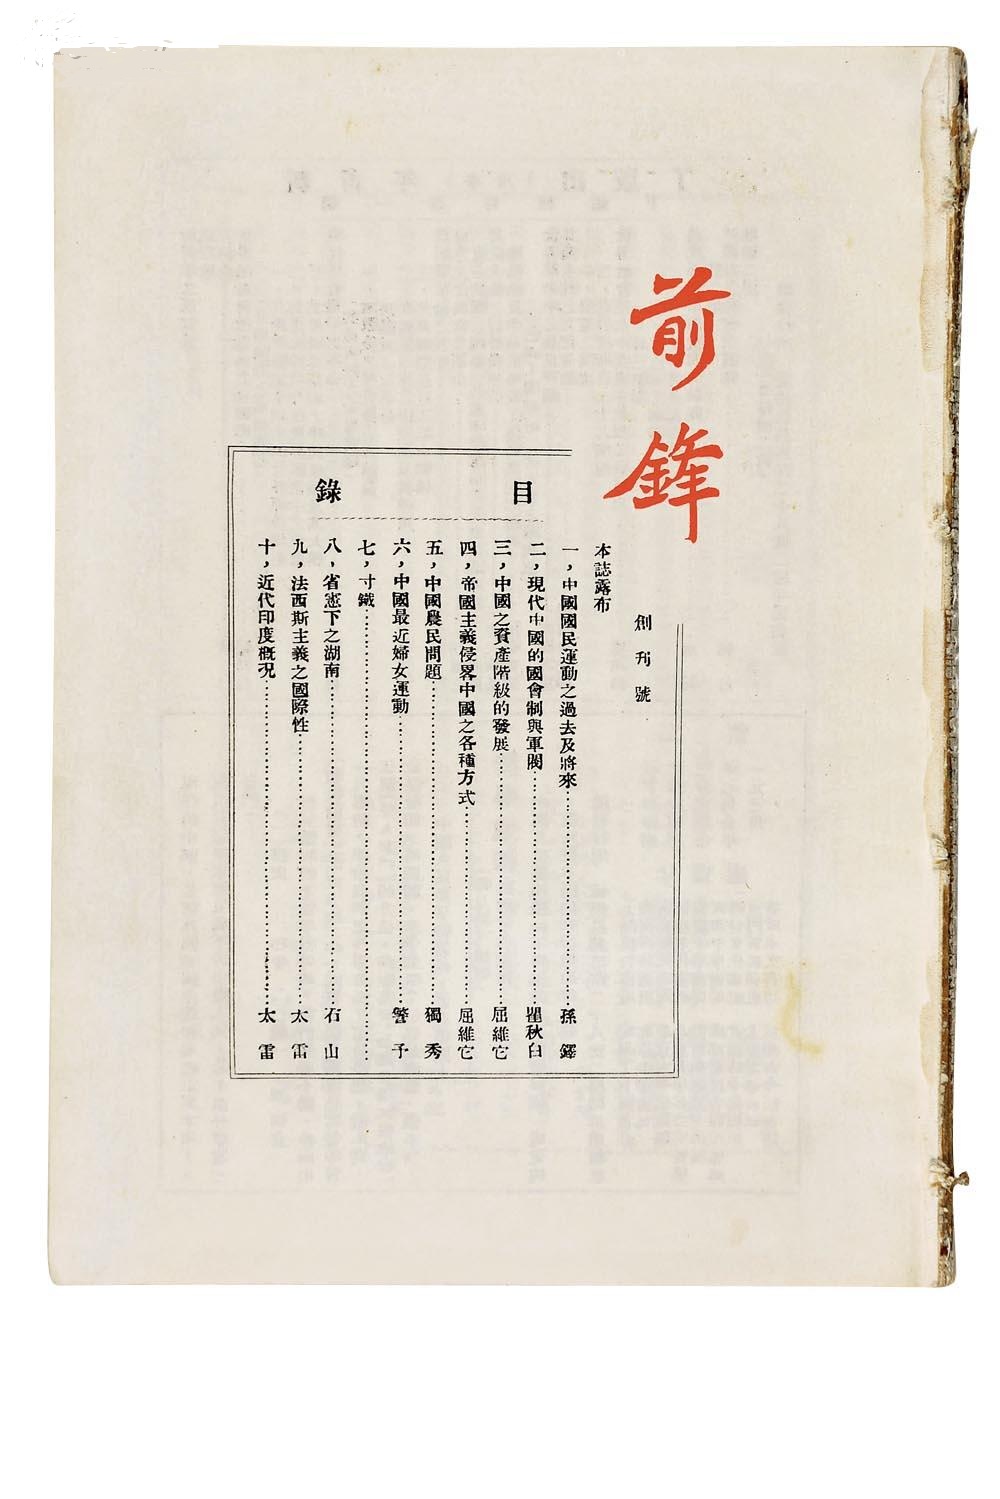 前鋒
創刊號
目錄
本誌露布
一，中國國民運動之過去及將來……孫鐸
二，現代中國的國會制與軍閥……瞿秋白
三，中國之資產階級的發展……屈維它
四，帝國主義侵畧中國之各種方式……屈維它
五，中國農民問題……獨秀
六，中國最近婦女運動……警予
七，寸鐵……
八，省憲下之湖南……石山
九，法西斯主義之國際性……太雷
十，近代印度概況……太雷